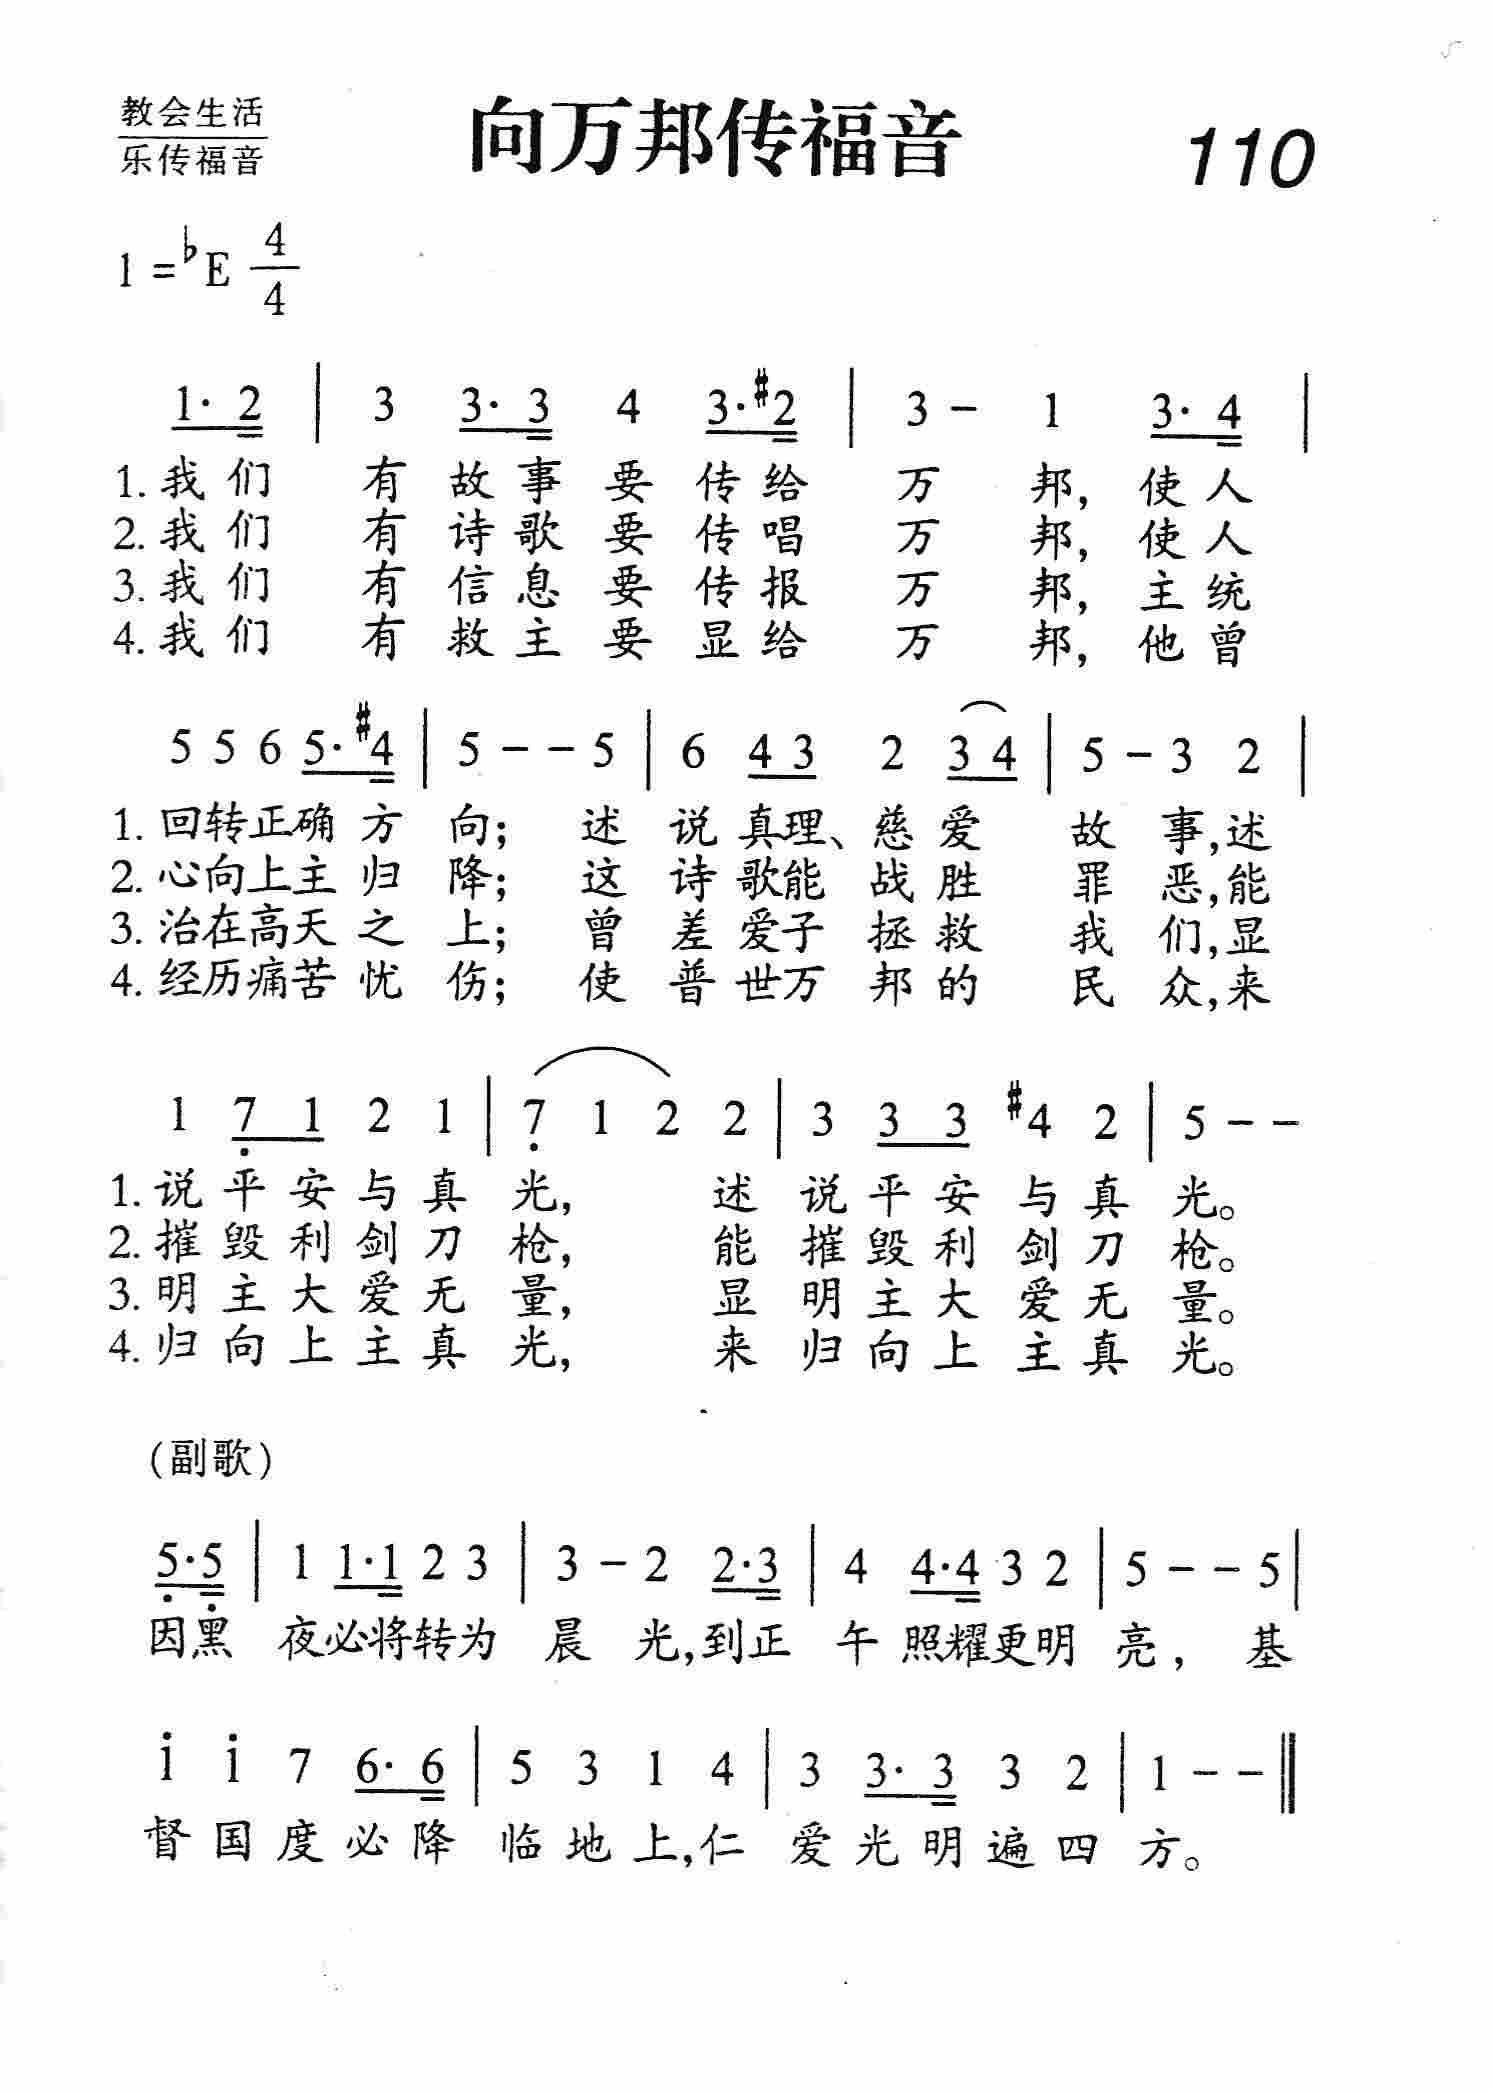 教会生活
乐传福音
向万邦传福音
110
1=♭E 4/4
1· 2 | 3 3· 3 4 3·#2 | 3 - 1 3· 4 |
1.我们 有故事要传给 万 邦，使人
2.我们 有诗歌要传唱 万 邦，使人
3.我们 有信息要传报 万 邦，主统
4.我们 有救主要显给 万 邦，他曾
5 5 6 5·#4 | 5 - - 5 | 6 4 3 2 3 4 | 5 - 3 2 |
1.回转正确方 向；述 说真理、慈爱 故 事，述
2.心向上主归 降；这 诗歌能 战胜 罪 恶，能
3.治在高天之 上；曾 差爱子 拯救 我 们，显
4.经历痛苦忧 伤；使 普世万 邦的 民 众，来
1 7̣ 1 2 1 | 7̣ 1 2 2 | 3 3 3 #4 2 | 5 - -
1.说平安与真 光， 述 说平安与真 光。
2.摧毁利剑刀 枪， 能 摧毁利剑刀 枪。
3.明主大爱无 量， 显 明主大爱无 量。
4.归向上主真 光， 来 归向上主真 光。
（副歌）
5̣·5̣ | 1 1·1 2 3 | 3 - 2 2·3 | 4 4·4 3 2 | 5 - - 5 |
因黑 夜必将转为 晨 光，到正 午 照耀更明 亮， 基
i i 7 6· 6 | 5 3 1 4 | 3 3· 3 3 2 | 1 - - ‖
督国度必降 临地上，仁 爱光明遍四 方。